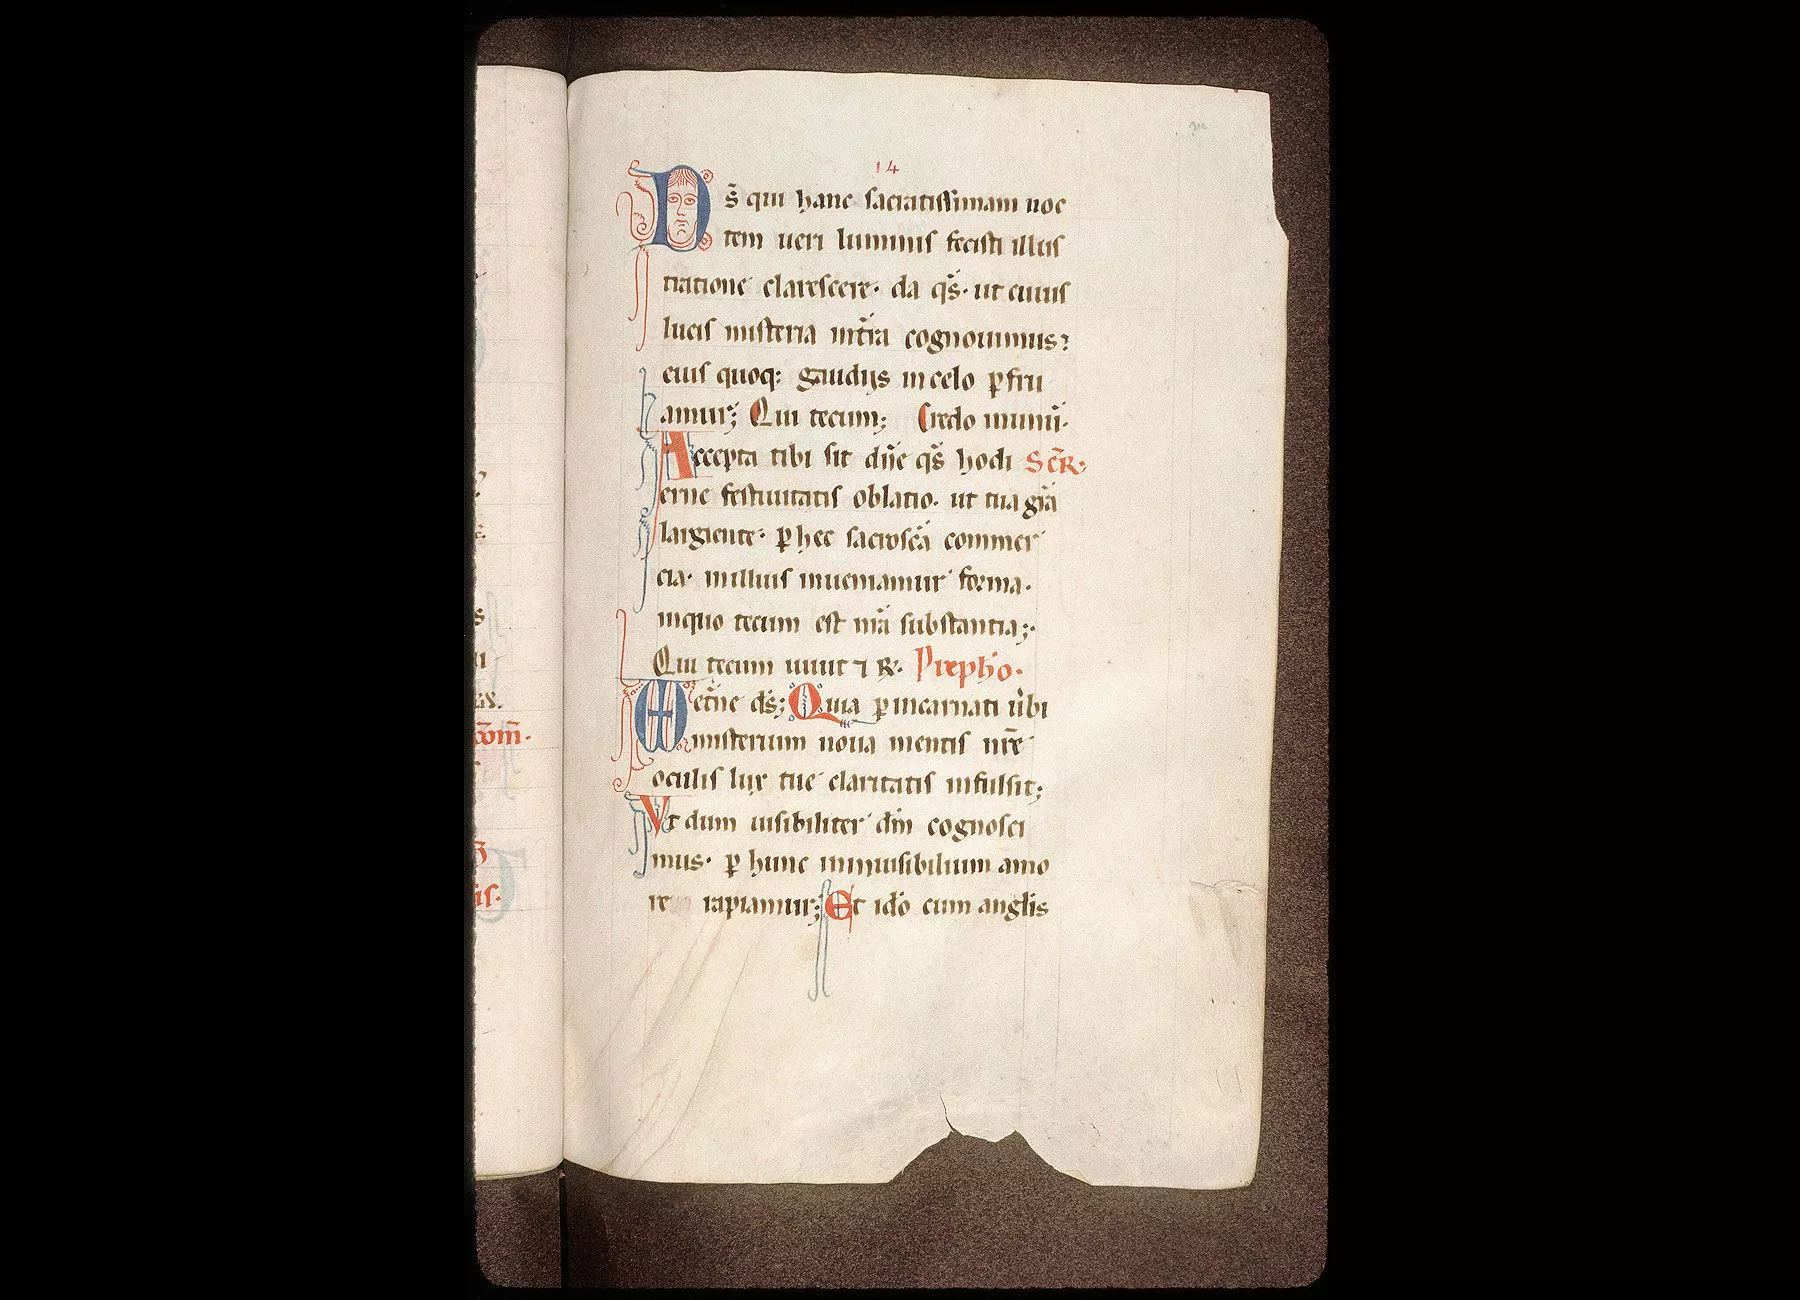 14
Ds̄ qui hanc sacratissimam noc
tem ueri luminis fecisti illus
tratione clarescere· da qs̄· ut cuius
lucis misteria in tr̄ra cognouimus:
eius quoq; gaudijs in celo ꝑfru
amur; Qui tecum; Credo in unū·
Accepta tibi sit dn̄e qs̄ hodi SECR̄·
erne festiuitatis oblatio· ut tua grā
largiente· ꝑ hec sacrosc̄a commer
cia· in illius inueniamur forma·
in quo tecum est nr̄a substantia;·
Qui tecum uiuit ⁊ R̄· Prephō·
et̄ne ds̄; Quia ꝑ incarnati ũbi
misterium noua mentis nr̄e
oculis lux tue claritatis infulsit;
Vt dum uisibiliter dm̄ cognosci
mus· ꝑ hunc in inuisibilium amo
re rapiamur; Et idō cum angl̄is
com̄·
is·